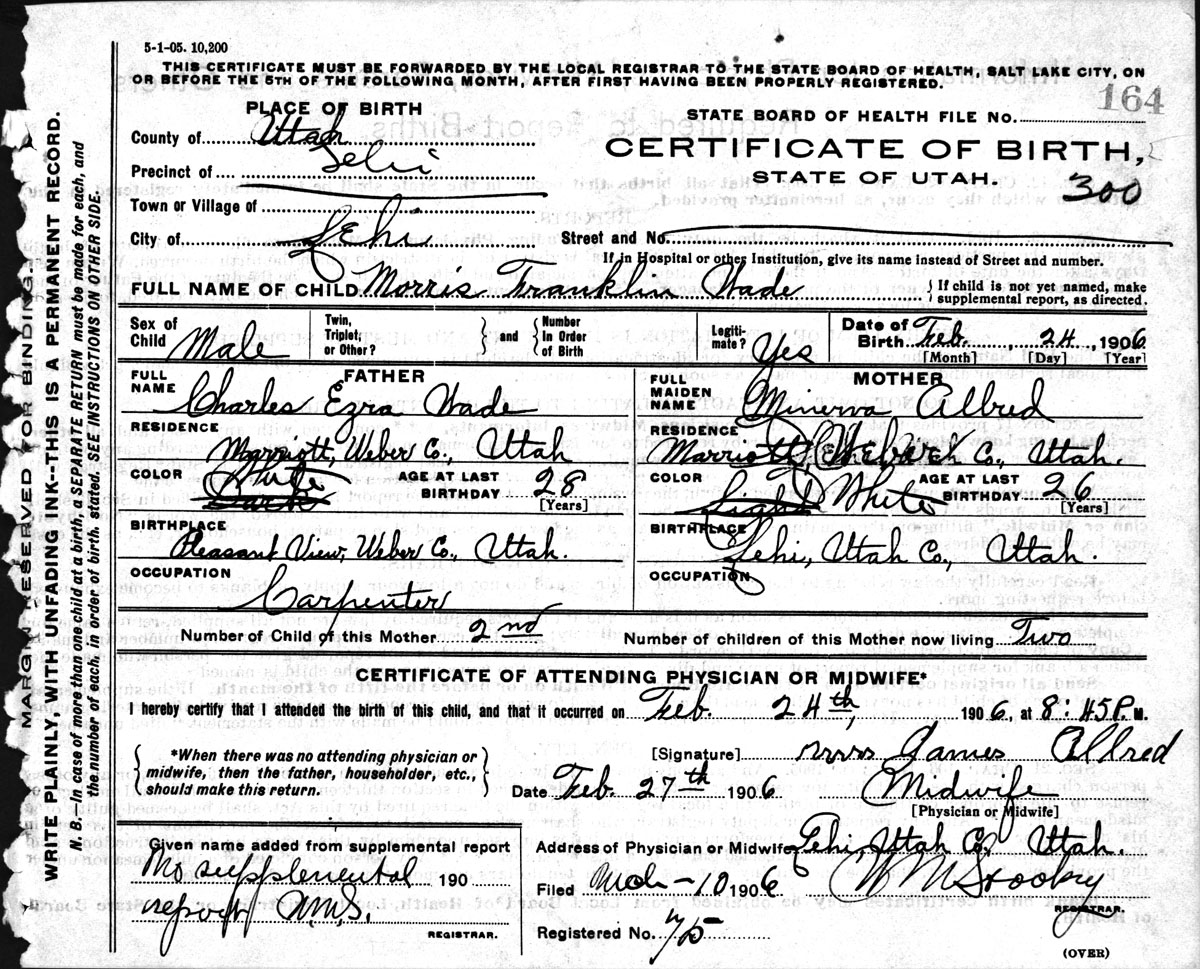 5-1-05. 10,200
THIS CERTIFICATE MUST BE FORWARDED BY THE LOCAL REGISTRAR TO THE STATE BOARD OF HEALTH, SALT LAKE CITY, ON
OR BEFORE THE 5TH OF THE FOLLOWING MONTH, AFTER FIRST HAVING BEEN PROPERLY REGISTERED.
164
PLACE OF BIRTH
County of Utah
Precinct of Lehi
Town or Village of
City of Lehi
STATE BOARD OF HEALTH FILE NO.
CERTIFICATE OF BIRTH,
STATE OF UTAH.
300
Street and No.
If in Hospital or other Institution, give its name instead of Street and number.
FULL NAME OF CHILD Morris Franklin Wade
{ If child is not yet named, make
supplemental report, as directed.
Sex of Child Male
Twin, Triplet, or Other?
} and {
Number in Order of Birth
Legitimate? Yes
Date of Birth Feb. 24, 1906
[Month] [Day] [Year]
FATHER
FULL NAME Charles Ezra Wade
RESIDENCE
Marriott, Weber Co., Utah
COLOR White
AGE AT LAST BIRTHDAY 28
[Years]
BIRTHPLACE
Pleasant View, Weber Co., Utah.
OCCUPATION
Carpenter
MOTHER
FULL MAIDEN NAME Minerva Allred
RESIDENCE
Marriott, Weber Co., Utah.
COLOR Light White
AGE AT LAST BIRTHDAY 26
[Years]
BIRTHPLACE
Lehi, Utah Co., Utah.
OCCUPATION
Number of Child of this Mother 2nd
Number of children of this Mother now living Two
CERTIFICATE OF ATTENDING PHYSICIAN OR MIDWIFE*
I hereby certify that I attended the birth of this child, and that it occurred on Feb. 24th, 1906, at 8:45 P. M.
{ *When there was no attending physician or
midwife, then the father, householder, etc.,
should make this return. }
[Signature] Mrs James Allred
Date Feb. 27th 1906
Midwife
[Physician or Midwife]
Given name added from supplemental report
No supplemental 190
report
REGISTRAR.
Address of Physician or Midwife Lehi, Utah Co., Utah.
Filed Mch-10 1906
REGISTRAR.
Registered No.
(OVER)
MARGIN RESERVED FOR BINDING.
WRITE PLAINLY, WITH UNFADING INK--THIS IS A PERMANENT RECORD.
N. B.—In case of more than one child at a birth, a SEPARATE RETURN must be made for each, and
the number of each, in order of birth, stated. SEE INSTRUCTIONS ON OTHER SIDE.